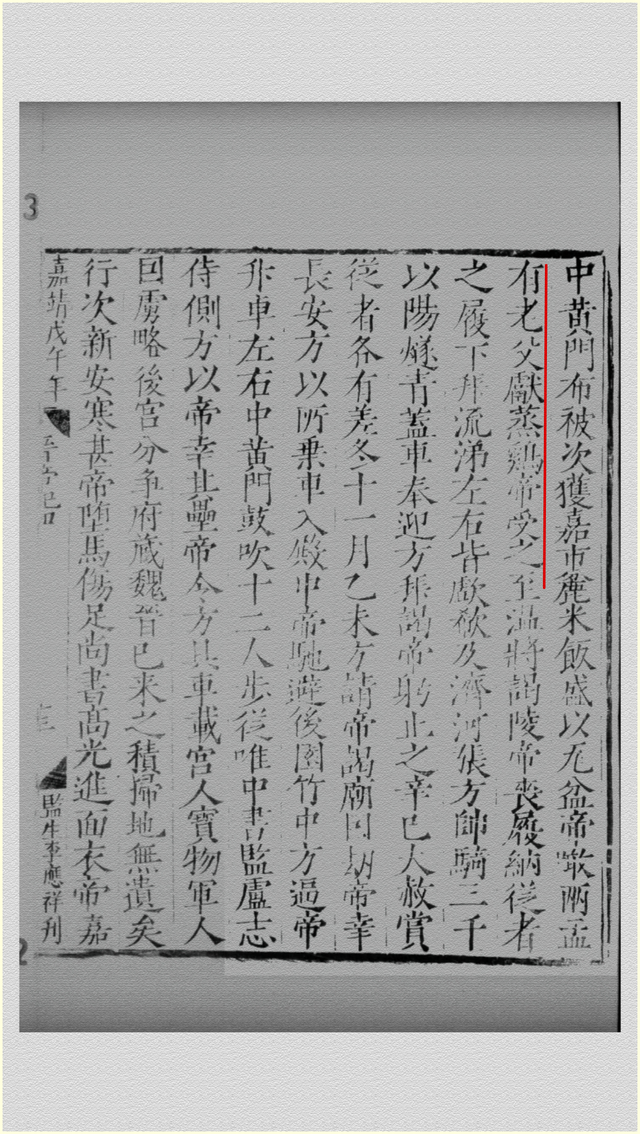 中黃門布被次獲嘉市麄米飯盛以瓦盆帝噉兩盂
有老父獻蒸鷄帝受之至溫將謁陵帝喪履納從者
之履下拜流涕左右皆歔欷及濟河張方帥騎三千
以陽燧青蓋車奉迎方拜謁帝躬止之辛巳大赦賞
從者各有差冬十一月乙未方請帝謁廟因劫帝幸
長安方以所乗車入殿中帝馳避後園竹中方逼帝
升車左右中黃門鼓吹十二人步從唯中書監盧志
侍側方以帝幸其壘帝令方具車載宮人寳物軍人
因虜略後宮分争府藏魏晉已来之積掃地無遺矣
行次新安寒甚帝墮馬傷足尚書髙光進面衣帝嘉
嘉靖戊午年
監生李應祥刋
3
2